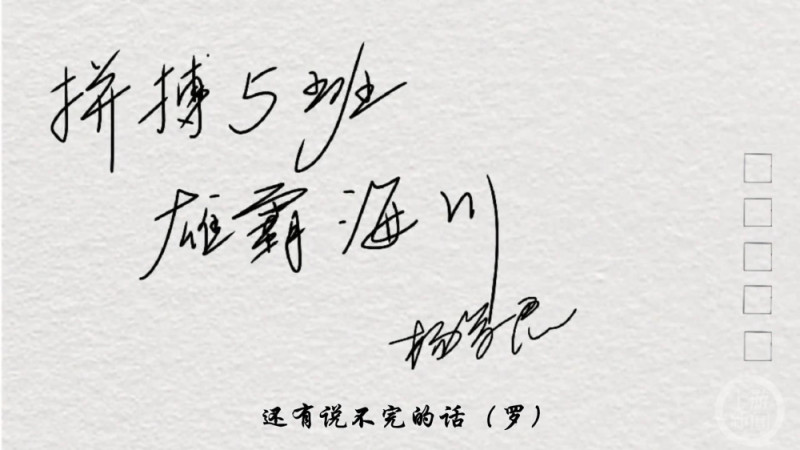 拼搏5班
雄霸海川
还有说不完的话（罗）